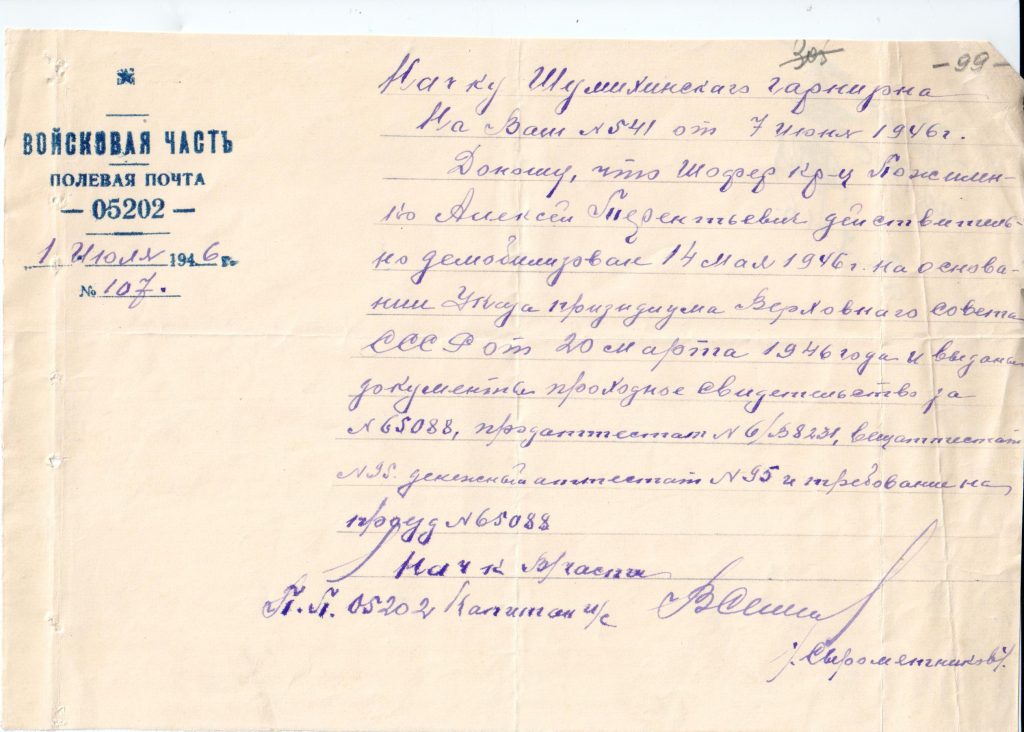 305
-99-
ВОЙСКОВАЯ ЧАСТЬ
ПОЛЕВАЯ ПОЧТА
— 05202 —
1 Июля 1946 г.
№ 107.
Нач ку Шумихинскаго гарнирна
На Ваш N541 от 7 Июня 1946 г.
Доношу, что Шофер кр-ц
Алексей Терентьевич действитель-
но демобилизован 14 мая 1946 г. на основа-
нии Указа призидиума Верховнаго совета
СССР от 20 марта 1946 года и выданы
документы проходное свидетельство за
N65088, продаттестат N6/В8231, вещаттестат
N95. денежный аттестат N95 и требование на
проезд N65088
Нач к В/части
П.П. 05202 Капитан и/с
/.Сыромятников/.